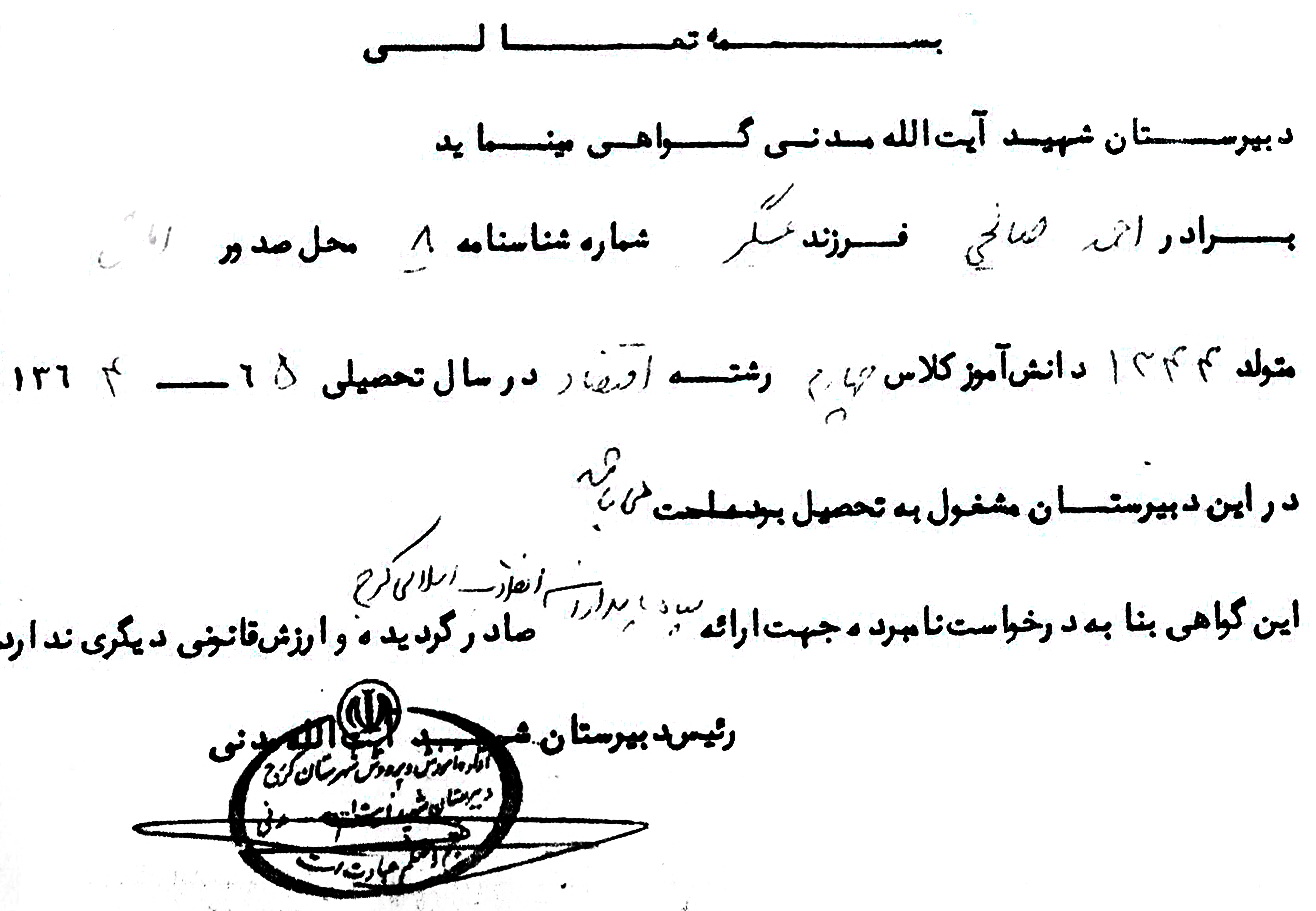 بسمه تعالی
دبیرستان شهید آیت‌الله مدنی گواهی مینماید
برادر احمد صالحی فرزند عسگر شماره شناسنامه ۸ محل صدور
متولد ۱۳۴۴ دانش‌آموز کلاس چهارم رشته اقتصاد در سال تحصیلی ۶۵ — ۱۳۶۴
در این دبیرستان مشغول به تحصیل بوده‌است می باشد
این گواهی بنا به درخواست نامبرده جهت ارائه سپاه پاسداران انقلاب اسلامی کرج صادر گردیده و ارزش قانونی دیگری ندارد
رئیس دبیرستان شهید آیت‌الله مدنی
اداره آموزش و پرورش شهرستان کرج
دبیرستان شهید آیت‌الله مدنی
عبادت است